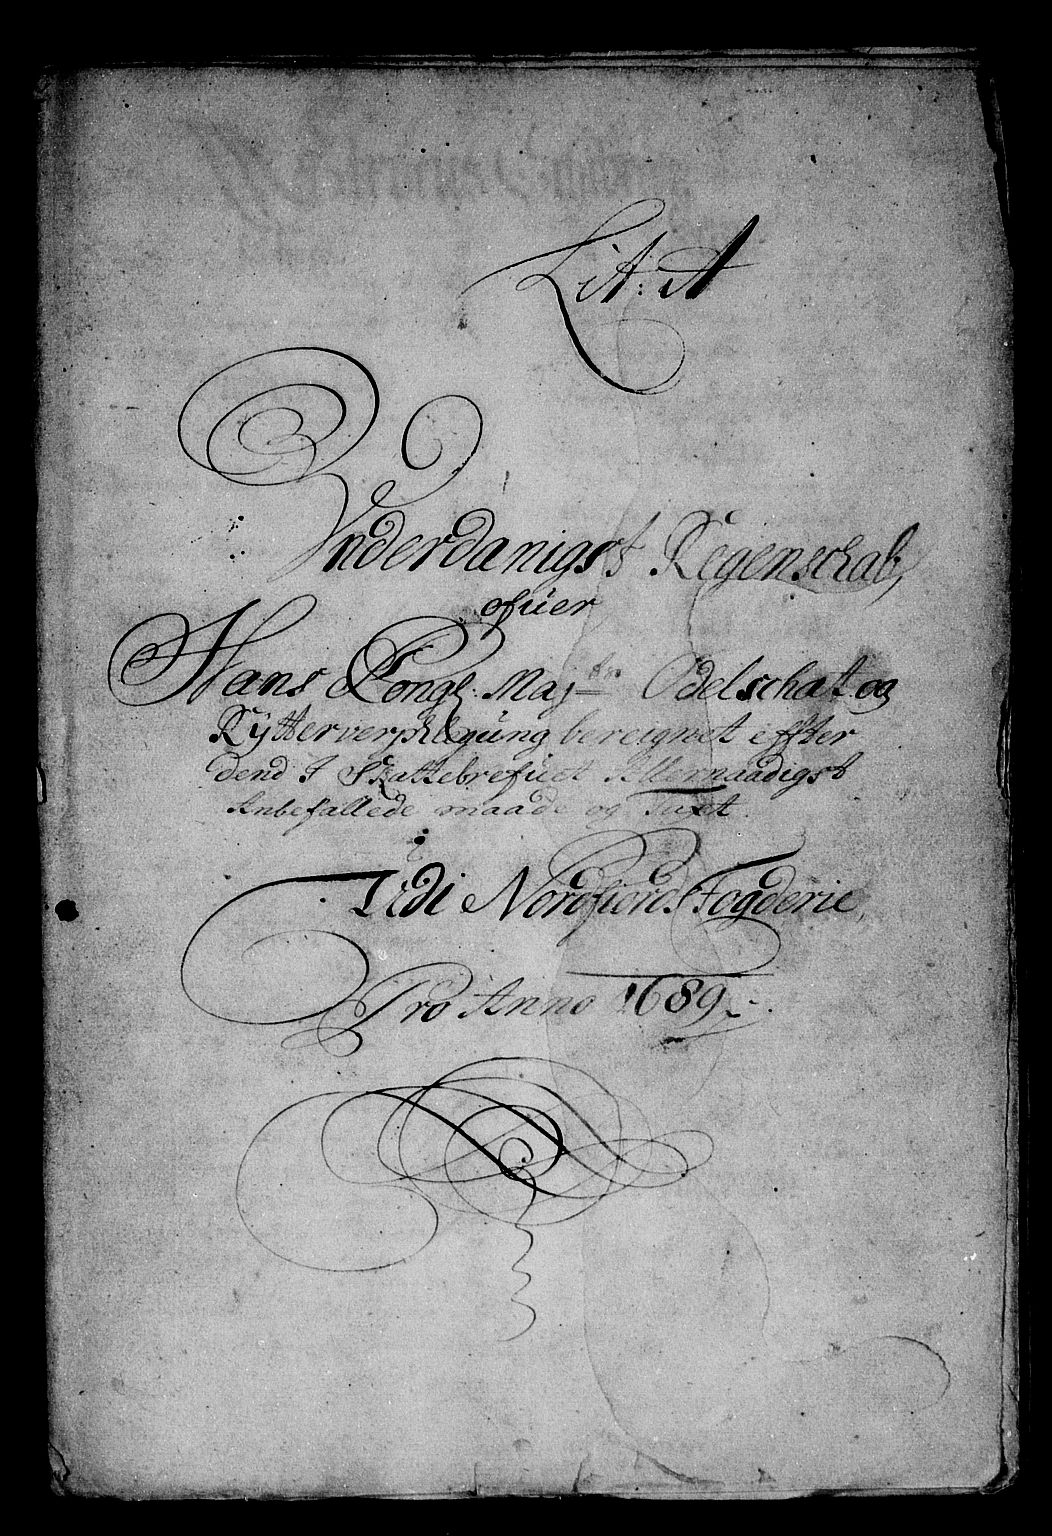 Lit: A
Underdanigst Regenschab,
ofuer
Hans Kongl: May:ttes Odelschat og
Rytterverpflegning beregnet effter
dend I Skattebrefuet Allernaadigst
Anbefallede maade og Taxt.
Udi Nordfiords Fogderie,
Pro Anno 1689.